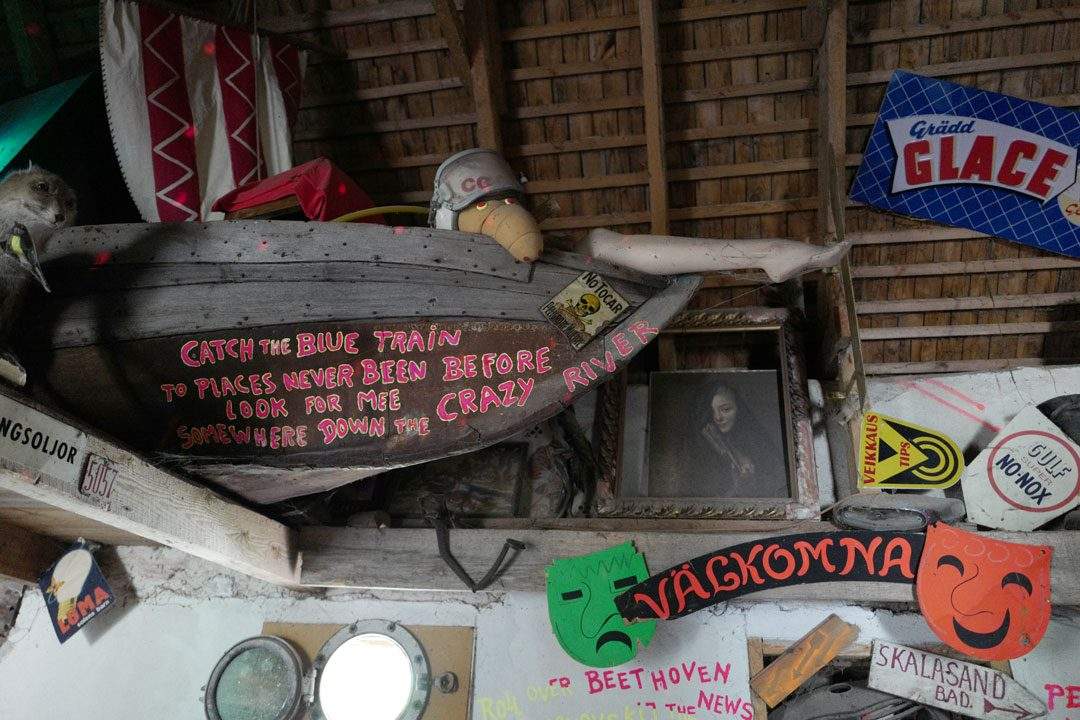 CG
Grädd
GLACE
NO TOCAR
CATCH THE BLUE TRAIN
TO PLACES NEVER BEEN BEFORE
LOOK FOR MEE
SOMEWHERE DOWN THE CRAZY RIVER
NGSOLJOR
5057
VEIKKAUS
TIPS
GULF
SUPER
NO-NOX
VÄLKOMNA
LOMA
SKALASAND
BAD.
ER BEETHOVEN
ROLL OVER
THE NEWS
PE